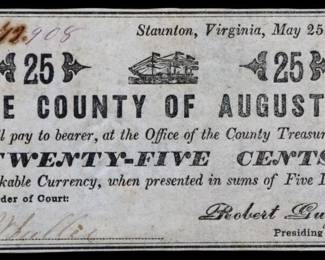 908
Staunton, Virginia, May 25
25 25
E COUNTY OF AUGUST
ll pay to bearer, at the Office of the County Treasur
TWENTY-FIVE CENTS
kable Currency, when presented in sums of Five
der of Court:
Robert Gu
Presiding